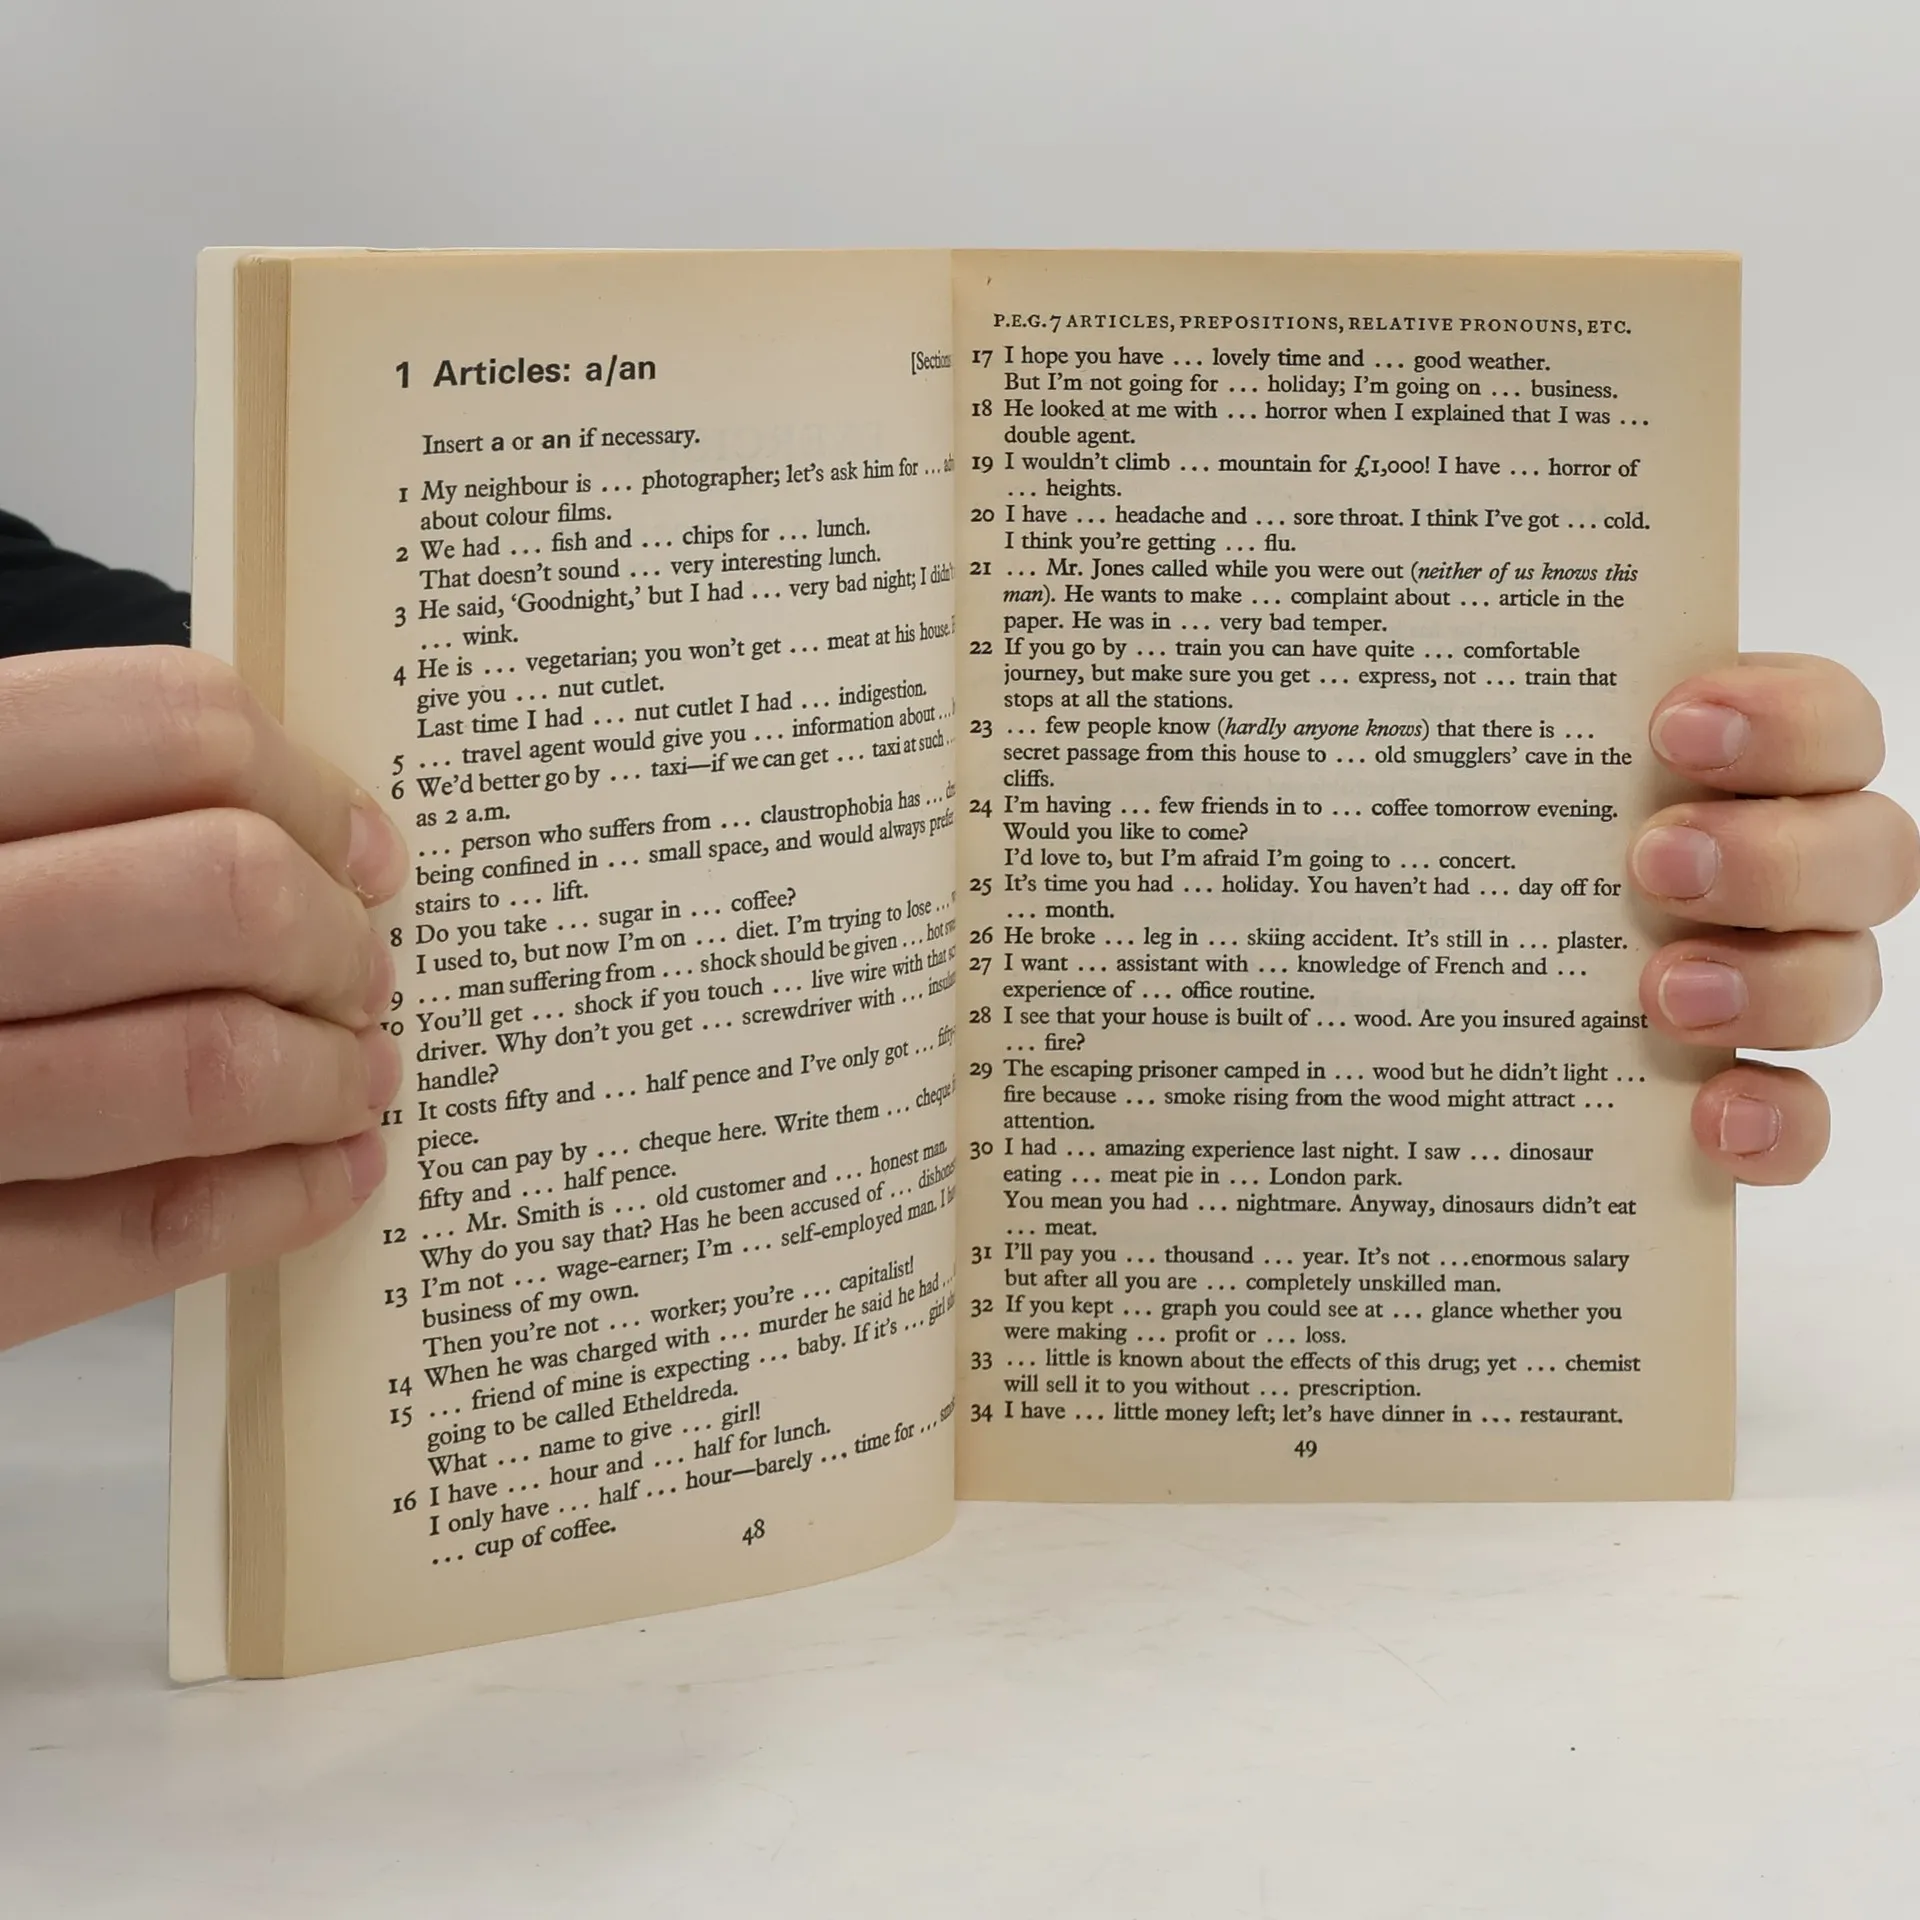 1 Articles: a/an
Insert a or an if necessary.
1 My neighbour is ... photographer; let's ask him for ...
about colour films.
2 We had ... fish and ... chips for ... lunch.
That doesn't sound ... very interesting lunch.
3 He said, ‘Goodnight,’ but I had ... very bad night; I didn't
... wink.
4 He is ... vegetarian; you won't get ... meat at his house.
give you ... nut cutlet.
Last time I had ... nut cutlet I had ... indigestion.
5 ... travel agent would give you ... information about ...
6 We'd better go by ... taxi—if we can get ... taxi at such ...
as 2 a.m.
... person who suffers from ... claustrophobia has ...
being confined in ... small space, and would always prefer
stairs to ... lift.
8 Do you take ... sugar in ... coffee?
I used to, but now I'm on ... diet. I'm trying to lose ...
9 ... man suffering from ... shock should be given ... hot
10 You'll get ... shock if you touch ... live wire with that
driver. Why don't you get ... screwdriver with ...
handle?
11 It costs fifty and ... half pence and I've only got ... fifty
piece.
You can pay by ... cheque here. Write them ... cheque
fifty and ... half pence.
12 ... Mr. Smith is ... old customer and ... honest man.
Why do you say that? Has he been accused of ...
13 I'm not ... wage-earner; I'm ... self-employed man. I
business of my own.
Then you're not ... worker; you're ... capitalist!
14 When he was charged with ... murder he said he had ...
15 ... friend of mine is expecting ... baby. If it's ... girl
going to be called Etheldreda.
What ... name to give ... girl!
16 I have ... hour and ... half for lunch.
I only have ... half ... hour—barely ... time for ...
... cup of coffee.
48
P.E.G.7 ARTICLES, PREPOSITIONS, RELATIVE PRONOUNS, ETC.
17 I hope you have ... lovely time and ... good weather.
But I'm not going for ... holiday; I'm going on ... business.
18 He looked at me with ... horror when I explained that I was ...
double agent.
19 I wouldn't climb ... mountain for £1,000! I have ... horror of
... heights.
20 I have ... headache and ... sore throat. I think I've got ... cold.
I think you're getting ... flu.
21 ... Mr. Jones called while you were out (neither of us knows this
man). He wants to make ... complaint about ... article in the
paper. He was in ... very bad temper.
22 If you go by ... train you can have quite ... comfortable
journey, but make sure you get ... express, not ... train that
stops at all the stations.
23 ... few people know (hardly anyone knows) that there is ...
secret passage from this house to ... old smugglers' cave in the
cliffs.
24 I'm having ... few friends in to ... coffee tomorrow evening.
Would you like to come?
I'd love to, but I'm afraid I'm going to ... concert.
25 It's time you had ... holiday. You haven't had ... day off for
... month.
26 He broke ... leg in ... skiing accident. It's still in ... plaster.
27 I want ... assistant with ... knowledge of French and ...
experience of ... office routine.
28 I see that your house is built of ... wood. Are you insured against
... fire?
29 The escaping prisoner camped in ... wood but he didn't light ...
fire because ... smoke rising from the wood might attract ...
attention.
30 I had ... amazing experience last night. I saw ... dinosaur
eating ... meat pie in ... London park.
You mean you had ... nightmare. Anyway, dinosaurs didn't eat
... meat.
31 I'll pay you ... thousand ... year. It's not ...enormous salary
but after all you are ... completely unskilled man.
32 If you kept ... graph you could see at ... glance whether you
were making ... profit or ... loss.
33 ... little is known about the effects of this drug; yet ... chemist
will sell it to you without ... prescription.
34 I have ... little money left; let's have dinner in ... restaurant.
49